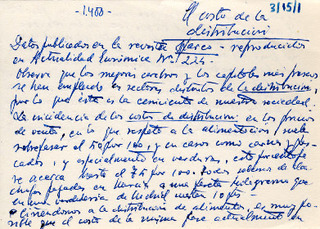 - 1.400 -
3/15/1
El costo de la
distribución
Datos publicados en la revista - reproducidos
en Actualidad Económica Nº 224.
Observa que los mejores cerebros y los capitales más
se han empleado en sectores distintos de la distribución,
por lo que ésta es la cenicienta de nuestra sociedad.
La incidencia de los costos de distribución en los precios
de venta, en lo que respeta a la alimentación suele
sobrepasar el 50 por 100, y en casos como carnes y pes-
cados, y especialmente en verduras, este porcentaje
se acerca hasta el 75 por 100. Todos sabemos de las
pagadas en Murcia a una peseta kilogramo que
en una verdulería de Madrid 10 pts.
a la distribución de alimentos, es muy po-
sible que el costo de la misma pase actualmente en